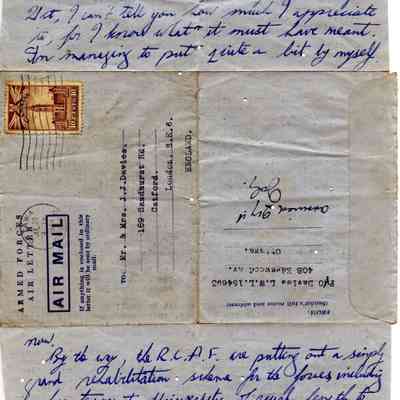 But, I can't tell you how much I appreciate
it, for I know what it must have meant.
I'm managing to put quite a bit by myself
ARMED FORCES
AIR LETTER
AIR MAIL
If anything is enclosed in this
letter it will be sent by ordinary
mail.
TO: Mr. & Mrs. J.J.Davies.
169 Sandhurst Rd.
Catford.
London. S.E.6.
ENGLAND.
FROM:
(Sender's full name and address)
P/O Davies L.W.L.
408 Edgewood Av.
Ottawa.
now!
By the way, the R.C.A.F. are putting out a simply
grand rehabilitation scheme for the forces including